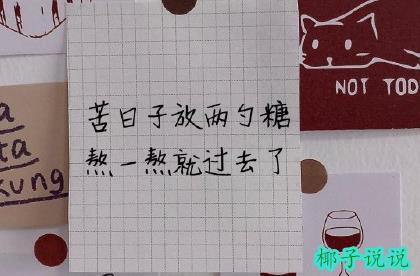 苦日子放两勺糖
熬一熬就过去了
NOT TOD
a
ta
kung
椰子说说